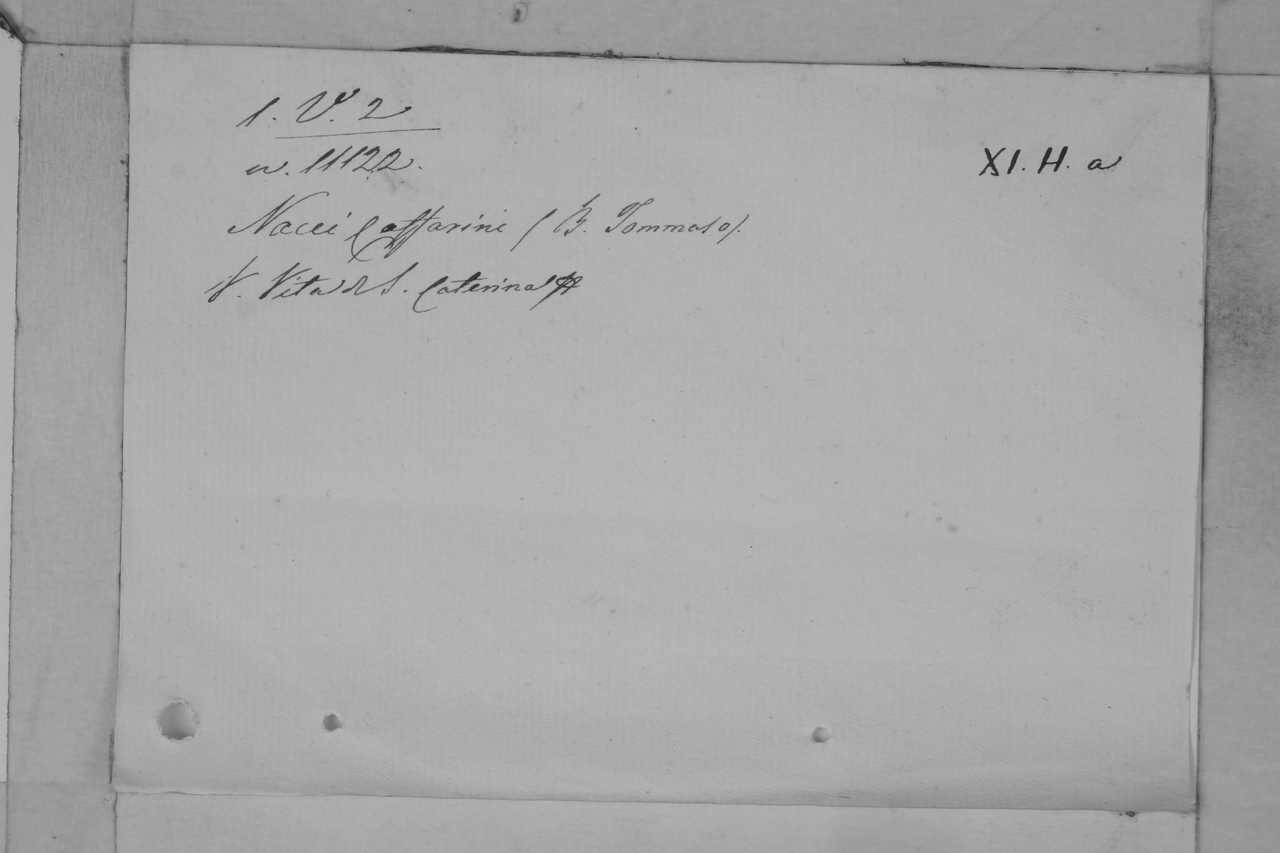 1. V. 2
n. 11122.
XI. H. a
Nacci Caffarini (B. Tommaso).
V. Vita di S. Caterina